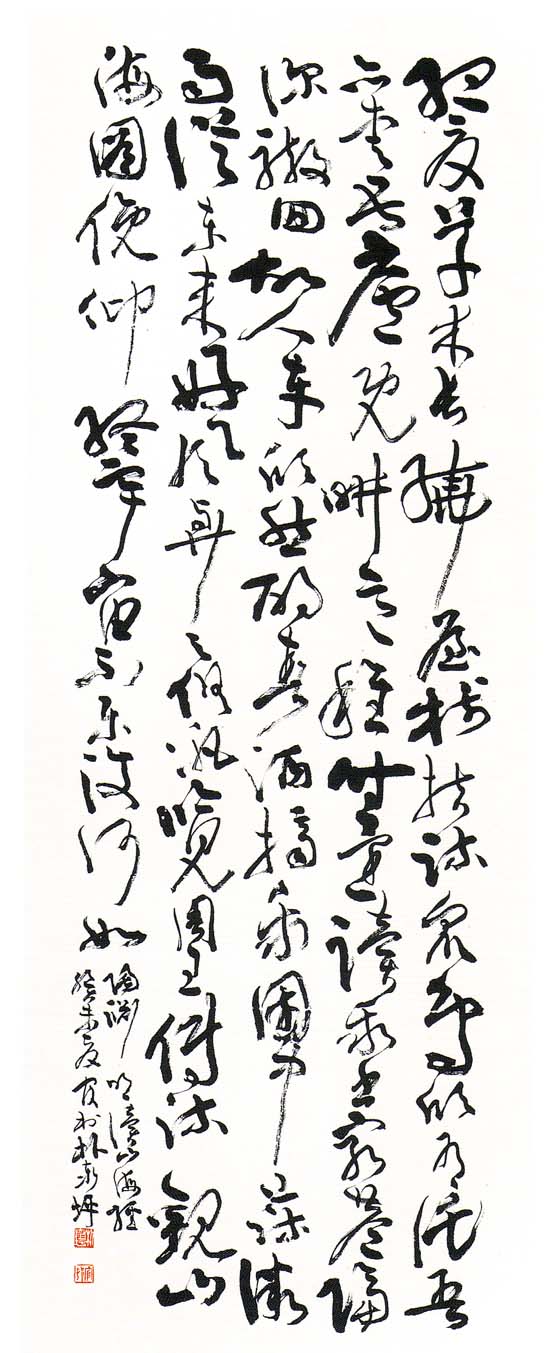 孟夏草木長繞屋樹扶疏眾鳥欣有託吾
亦愛吾廬既耕亦已種時還讀我書窮巷隔
深轍頗回故人車欣然酌春酒摘我園中蔬微
雨從東來好風與之俱汎覽周王傳流觀山
海圖俛仰終宇宙不樂復何如
陶淵明讀山海經
癸未夏